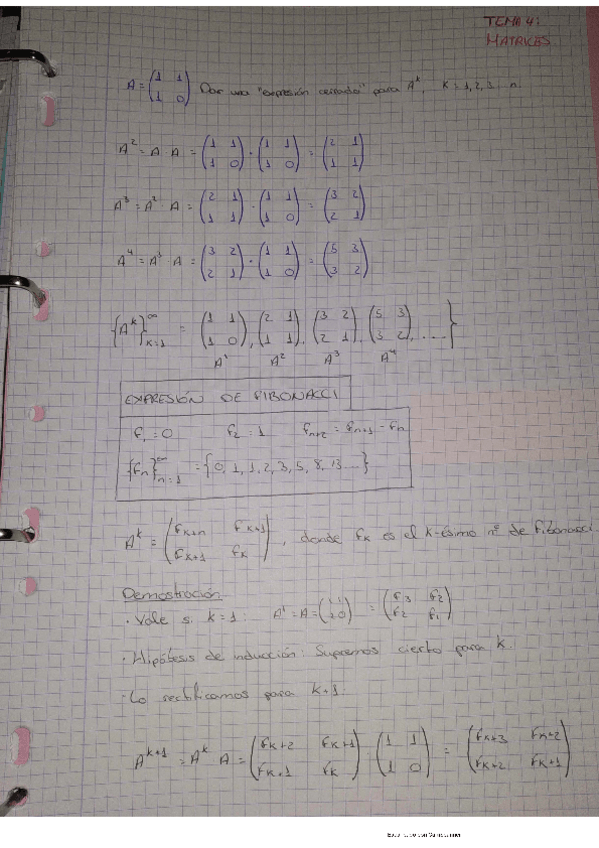 TEMA 4:
MATRICES
A = (1 1; 1 0) Dar una "expresión cerrada" para A^k, K = 1,2,3...n.
A² = A · A = (1 1; 1 0) · (1 1; 1 0) = (2 1; 1 1)
A³ = A² · A = (2 1; 1 1) · (1 1; 1 0) = (3 2; 2 1)
A⁴ = A³ · A = (3 2; 2 1) · (1 1; 1 0) = (5 3; 3 2)
{A^k}_{k=1}^∞ = (1 1; 1 0), (2 1; 1 1), (3 2; 2 1), (5 3; 3 2), ....}
A¹ A² A³ A⁴
EXPRESIÓN DE FIBONACCI
F₁ = 0 F₂ = 1 F_{n+2} = F_{n+1} - F_n
{F_n}_{n=1}^∞ = {0, 1, 1, 2, 3, 5, 8, 13....}
A^k = (F_{k+n} F_{k+1}; F_{k+1} F_k), donde F_k es el k-ésimo nº de Fibonacci
Demostración
· Vale si k=1: A¹ = A = (1 1; 1 0) = (F₃ F₂; F₂ F₁)
· Hipótesis de inducción: Supremos cierto para k.
· Lo rectificamos para k+1
A^{k+1} = A^k · A = (F_{k+2} F_{k+1}; F_{k+1} F_k) · (1 1; 1 0) = (F_{k+3} F_{k+2}; F_{k+2} F_{k+1})